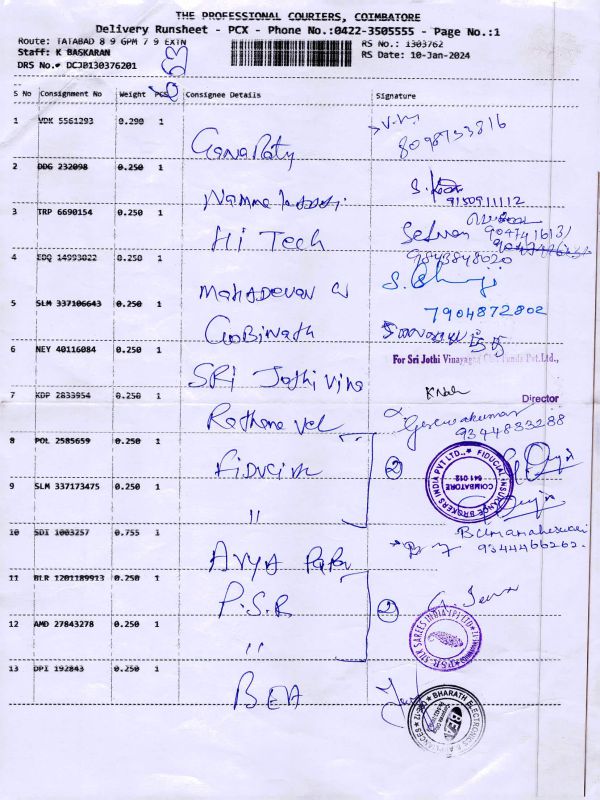 THE PROFESSIONAL COURIERS, COIMBATORE
Delivery Runsheet - PCX - Phone No.:0422-3505555 - Page No.:1
Route: TATABAD 8 9 GPM 7 9 EXTN
RS No.: 1303762
Staff: K BASKARAN
RS Date: 10-Jan-2024
DRS No.* DCJ0130376201
S No Consignment No Weight PCS Consignee Details Signature
1 VDK 5561293 0.290 1 Ganapaty V.M
8098753816
2 DDG 232098 0.250 1 Namma
9150911112
3 TRP 6690154 0.250 1 Hi Tech Selvan 9047416131
9843848020
4 EDQ 14993022 0.250 1 MAHADEVAN
7904872802
5 SLM 337106643 0.250 1 GoBiNath
6 NEY 40116084 0.250 1 SRi Jothi Vina
For Sri Jothi Vinayaga Pvt.Ltd.,
Director
7 KDP 2833954 0.250 1 Rathana vel
9344833288
8 POL 2585659 0.250 1 Fiducia 2
FIDUCIAL INSURANCE BROKERS INDIA PVT LTD.,
COIMBATORE
641 012
9 SLM 337173475 0.250 1 "
10 SDI 1003257 0.755 1 ARYA B.Umamaheswari
9344466262.
11 BLR 1201189913 0.250 1 P.S.R 2
PSR SILK SAREES INDIA (P) LTD
12 AMD 27843278 0.250 1 "
13 DPI 192843 0.250 1 BEA
BHARATH ELECTRONICS & APPLIANCES
BEA